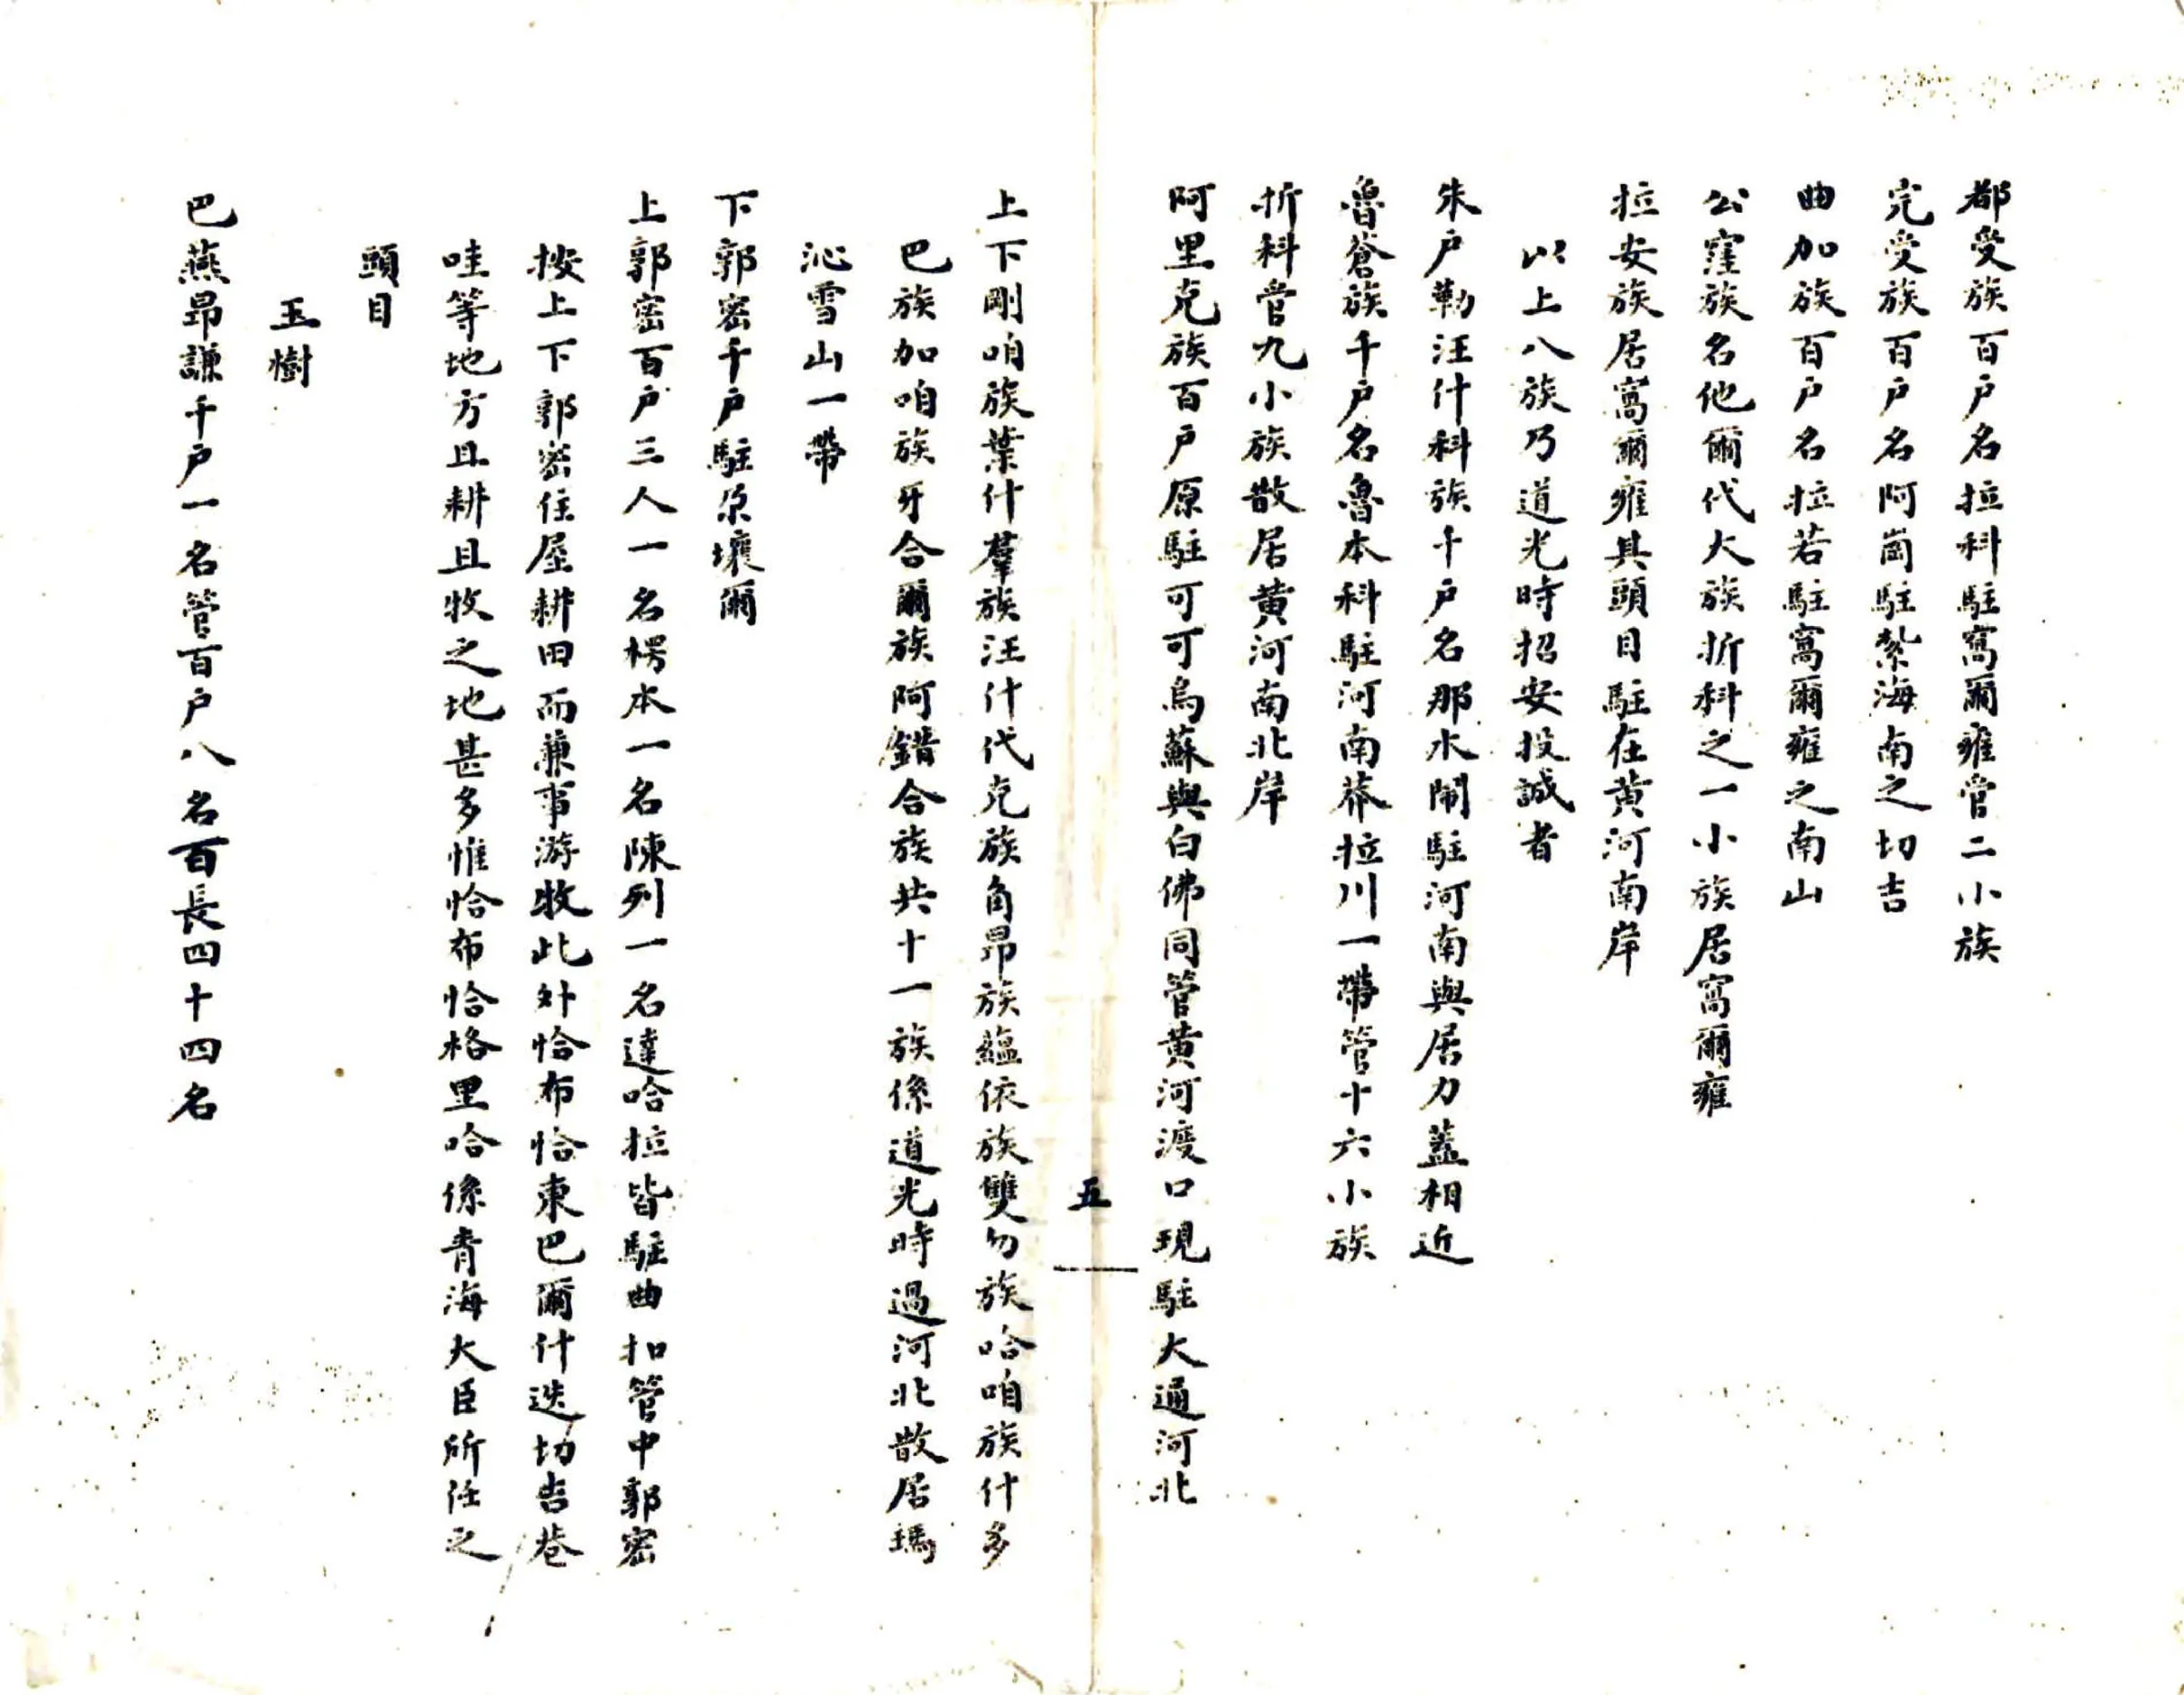 都受族百户名拉科駐窩爾雍管二小族
完受族百户名阿崗駐紮海南之切吉
曲加族百户名拉若駐窩爾雍之南山
公窪族名他爾代大族折科之一小族居窩爾雍
拉安族居窩爾雍其頭目駐在黃河南岸
以上八族乃道光時招安投誠者
朱户勒汪什科族千户名那木鬧駐河南與居力蓋相近
魯蒼族千户名魯本科駐河南莽拉川一帶管十六小族
折科管九小族散居黃河南北岸
阿里克族百户原駐可可烏蘇與白佛同管黃河渡口現駐大通河北
五
上下剛咱族葉什羣族汪什代克族角昂族蘊依族雙勿族哈咱族什多
巴族加咱族牙合爾族阿錯合族共十一族係道光時過河北散居瑪
沁雪山一帶
下郭密千户駐原壤爾
上郭密百户三人一名楞本一名陳列一名達哈拉皆駐曲扣管中郭密
按上下郭密住屋耕田而兼事游牧此外恰布恰東巴爾什迭切吉巷
哇等地方且耕且牧之地甚多惟恰布恰格里哈係青海大臣所任之
頭目
玉樹
巴燕昂謙千户一名管百户八名百長四十四名